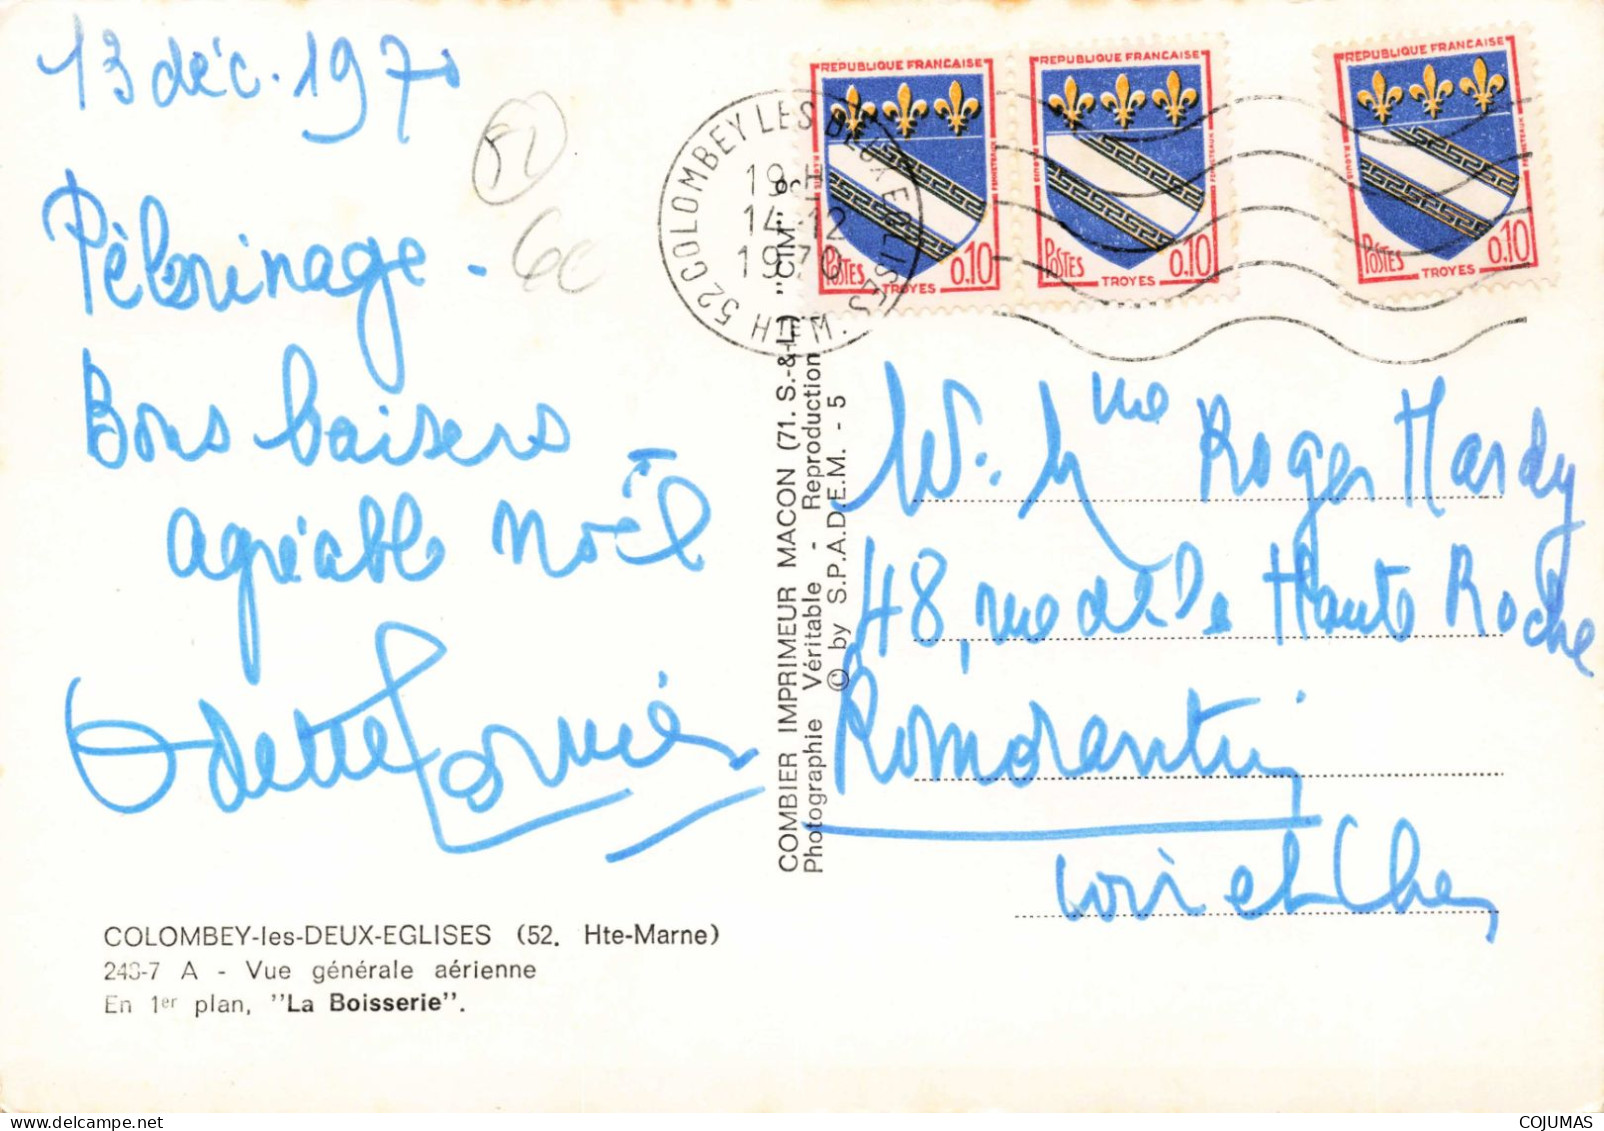 13 déc. 1970
Pèlerinage -
Bons baisers
agréable Noël
Odette
52
60
COLOMBEY-les-DEUX-EGLISES (52. Hte-Marne)
248-7 A - Vue générale aérienne
En 1er plan, "La Boisserie".
COMBIER IMPRIMEUR MACON (71. S.-&-L.) "CIM"
Photographie Véritable - Reproduction
© by S.P.A.D.E.M. - 5
52 COLOMBEY LES DEUX EGLISES
HTE M.
19 H
14-12
1970
REPUBLIQUE FRANCAISE
POSTES 0.10
TROYES
REPUBLIQUE FRANCAISE
POSTES 0.10
TROYES
REPUBLIQUE FRANCAISE
POSTES 0.10
TROYES
M. & Mme Roger Hardy
48, rue de la Haute Roche
Romorantin
Loir et Cher
COJUMAS